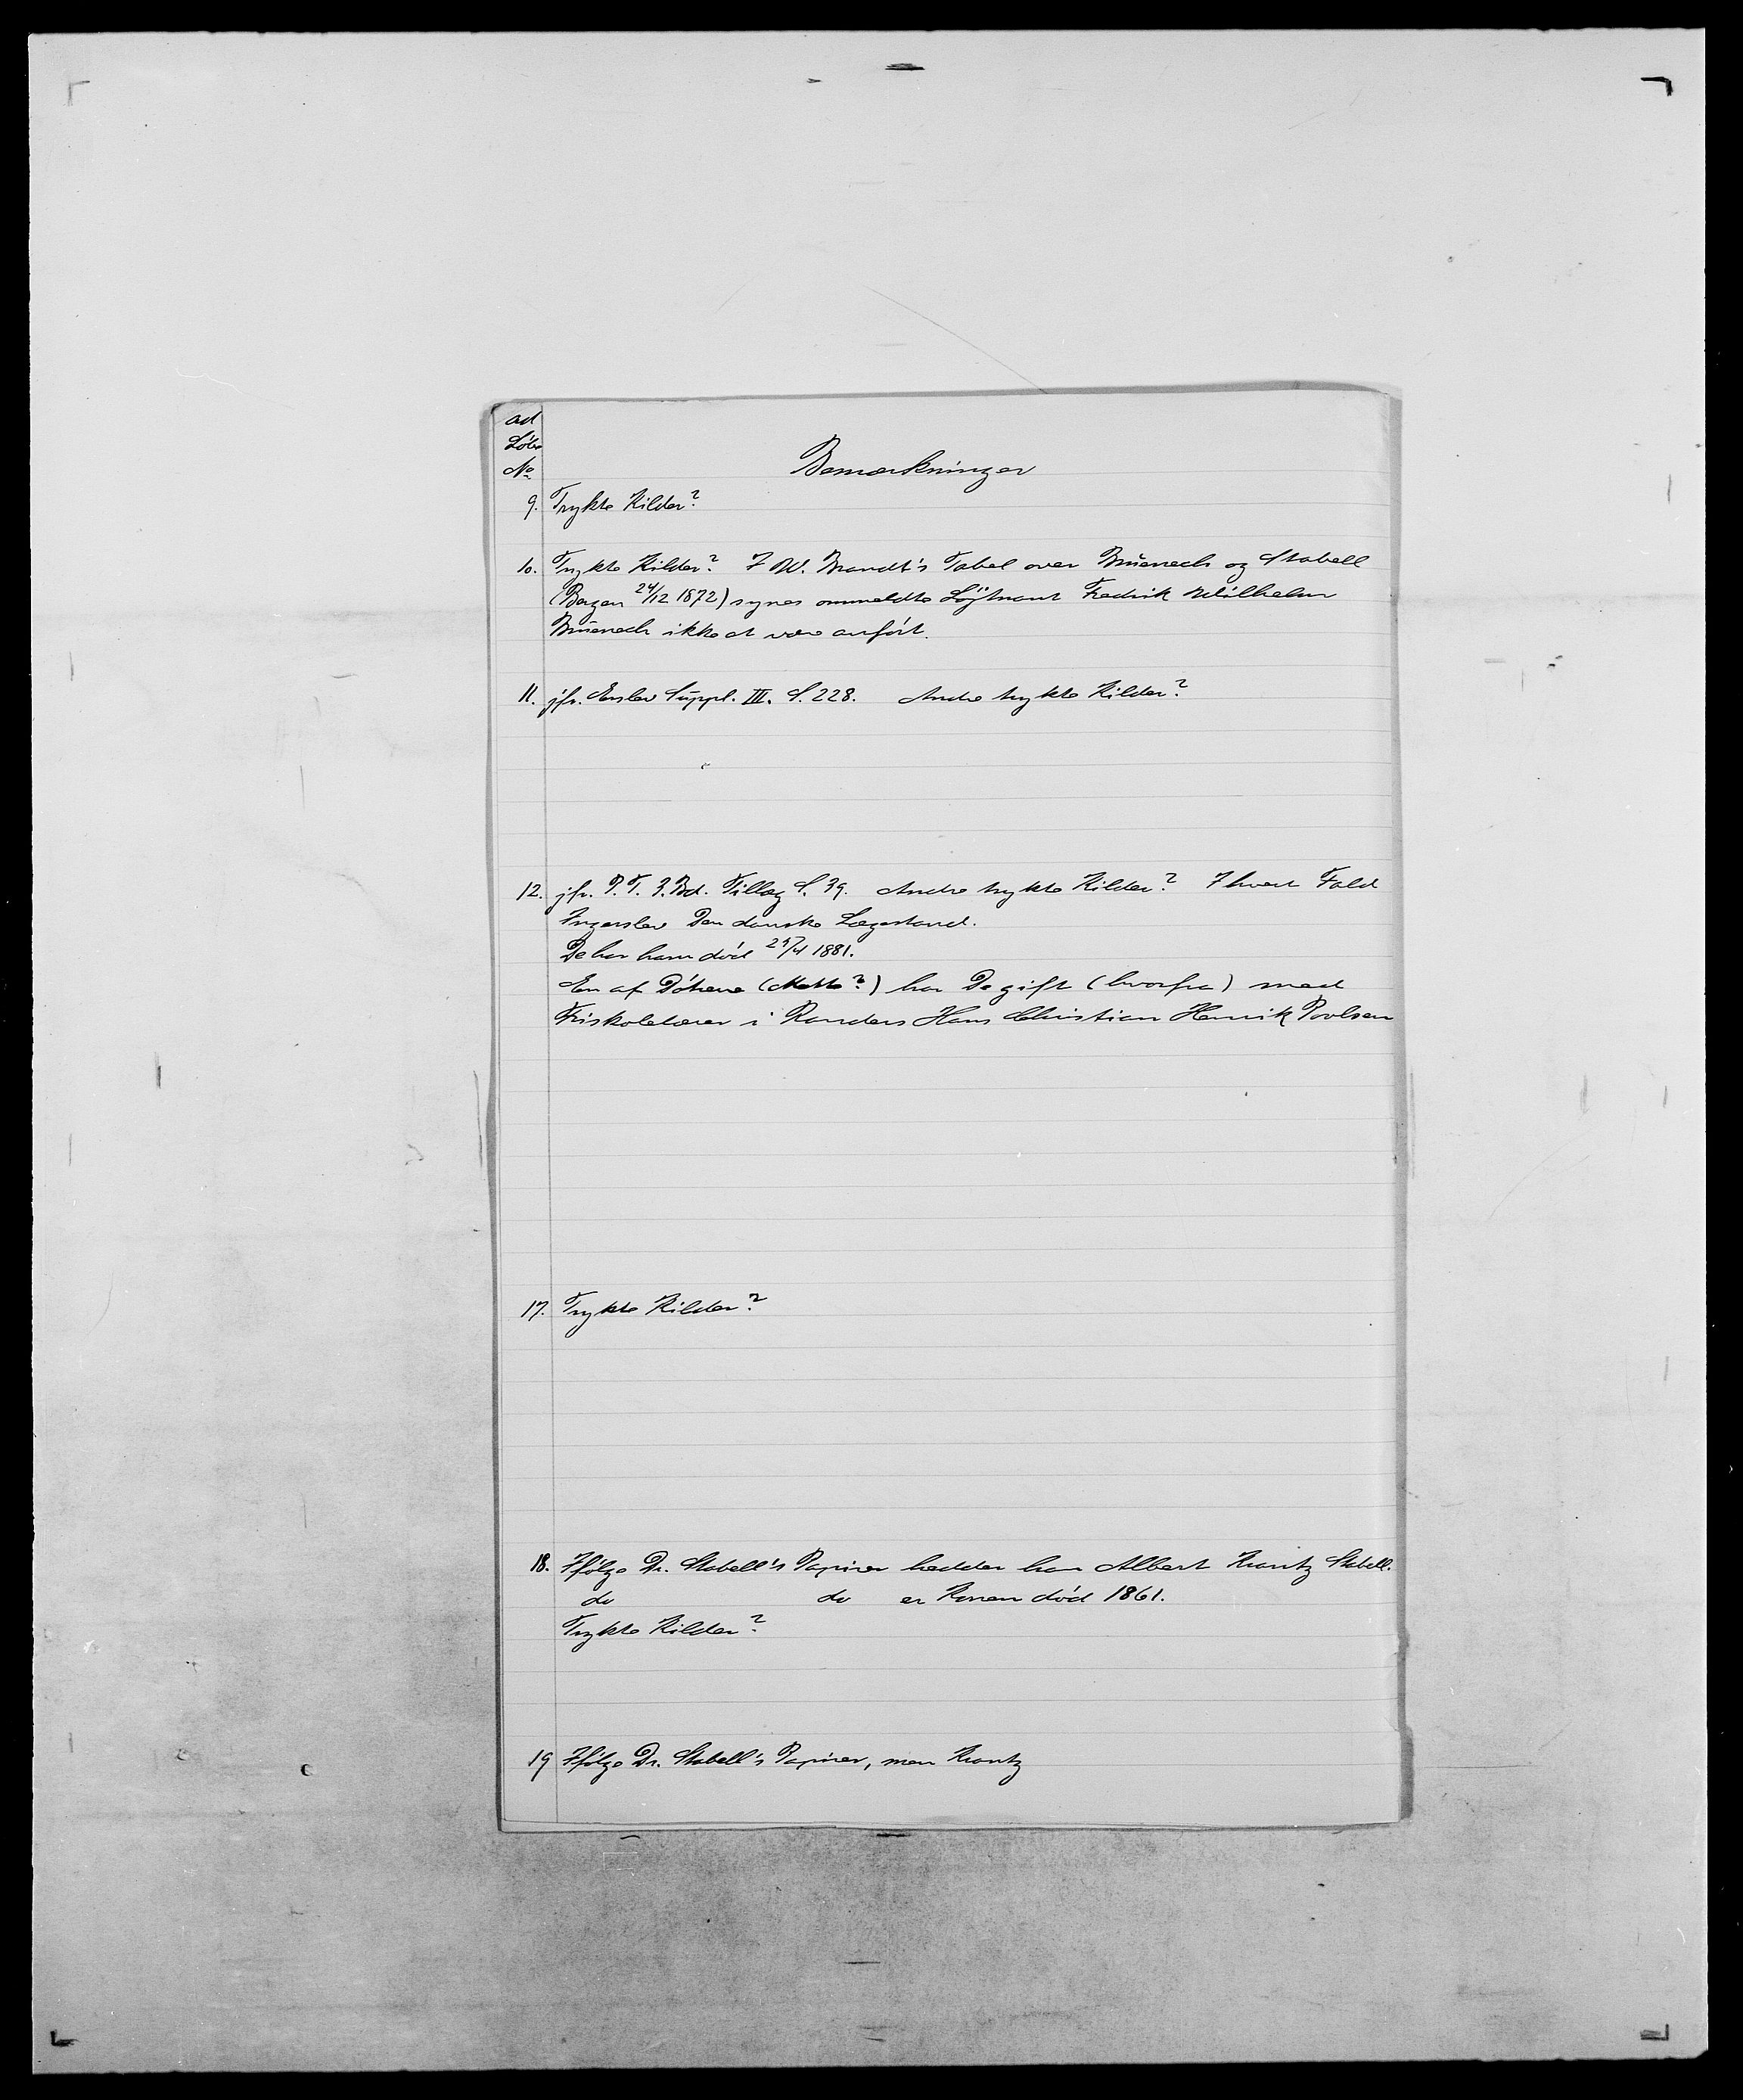 ad
Løbe
No
Bemærkninger
9. Trykte Kilder?
10. Trykte Kilder? I W. Brandt's Tabel over Brüenech og Stabell
(Bergen 24/12 1872) synes ommeldte Löjtnant Fredrik Wilhelm
Brüenech ikke at være anført.
11. jfr. Erslev Suppl. III. S. 228. Andre trykte Kilder?
12. jfr. P. T. 3. Bd. Tillæg S. 39. Andre trykte Kilder? I hvert Fald
Ingerslev Den danske Lægestand.
De har ham død 1881.
En af Døtrene (Mette?) har De gift (hvorfra) med
Friskolelærer i Randers Hans Christian Henrik Poulsen
17. Trykte Kilder?
18. Ifølge Dr. Stabell's Papirer hedder han Albert Krantz Stabell.
do do er Konen død 1861.
Trykte Kilder?
19 Ifølge Dr. Stabell's Papirer, men Krantz